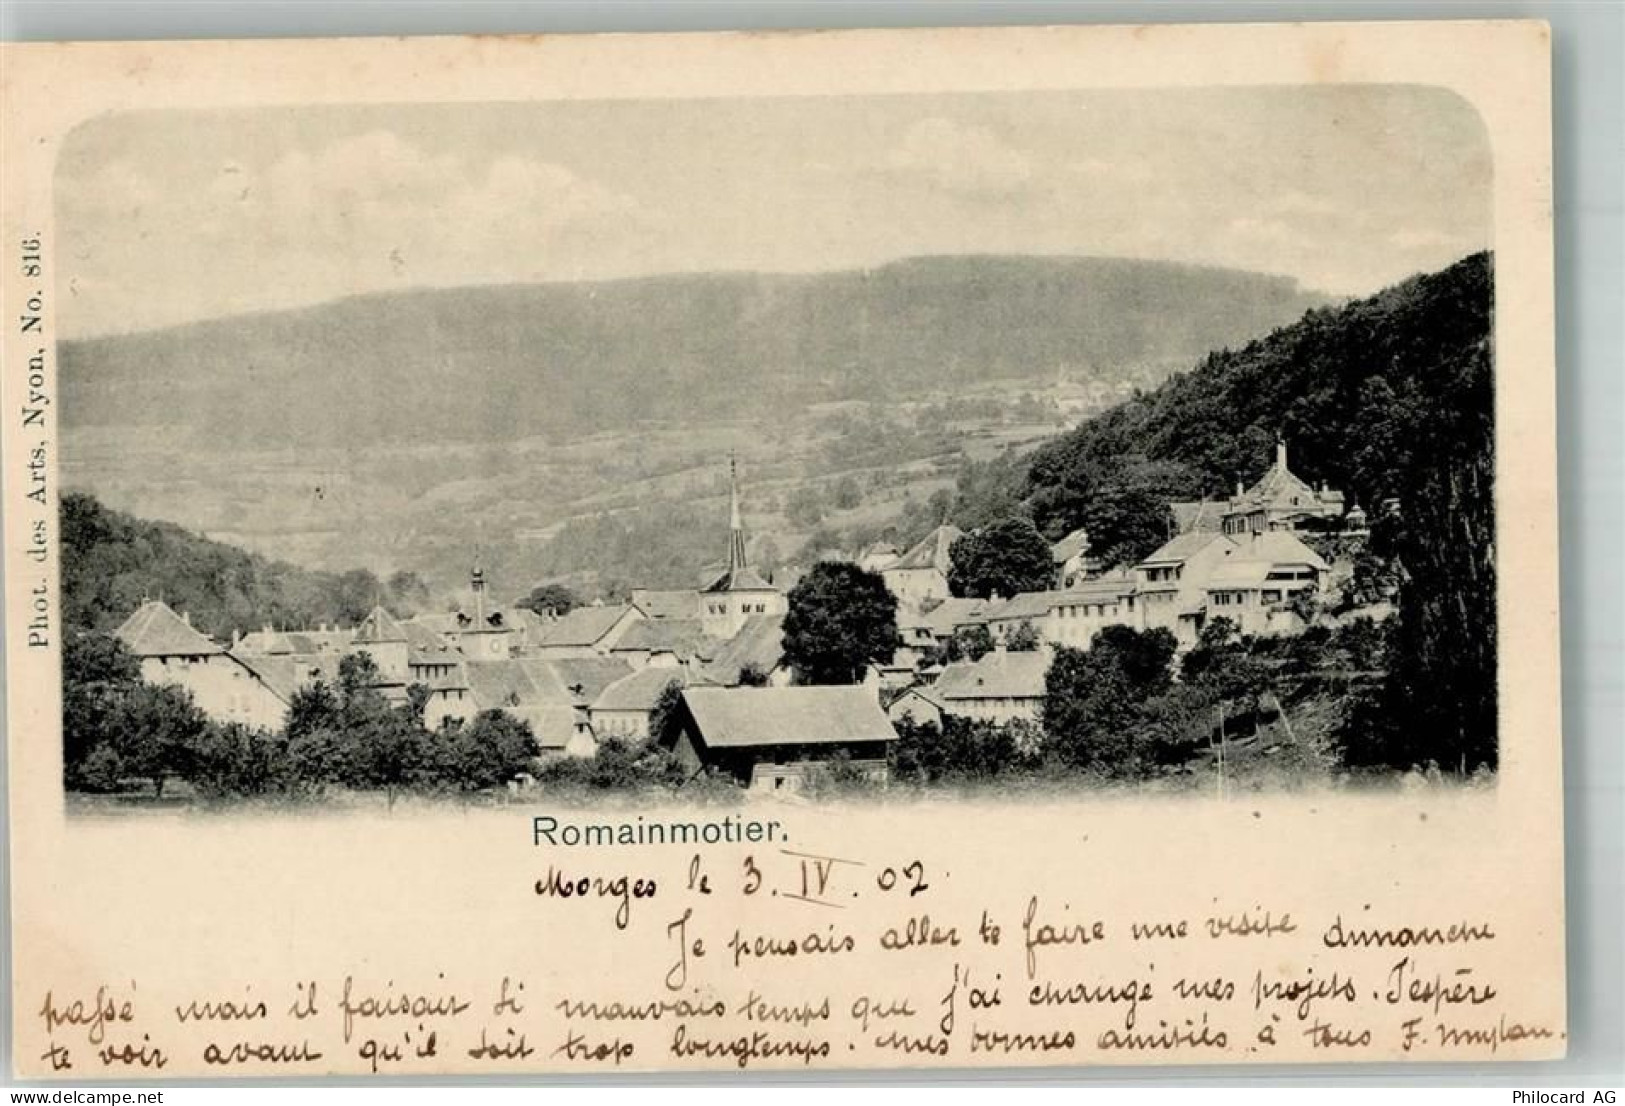 Phot. des Arts, Nyon, No. 816.
Romainmotier.
Morges le 3. IV. 02
Je pensais aller te faire une visite dimanche
passé mais il faisait si mauvais temps que j'ai changé mes projets. J'espère
te voir avant qu'il soit trop longtemps. Mes bonnes amitiés à tous F.
delcampe.net
Philocard AG